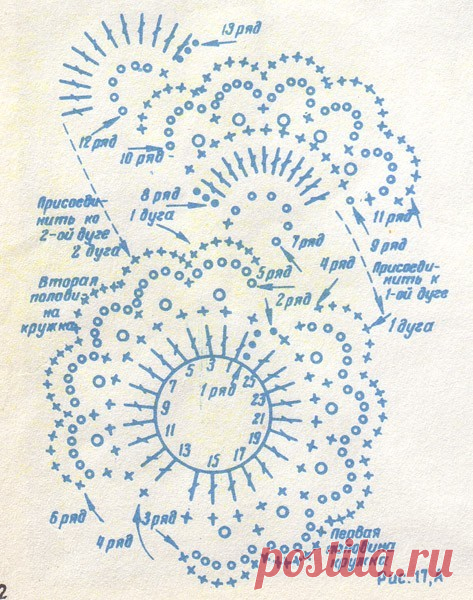 13 ряд
12 ряд
10 ряд
8 ряд
1 дуга
7 ряд
11 ряд
9 ряд
Присоеди-
нить ко
2-ой дуге
2 дуга
5 ряд
4 ряд
2 ряд
Присоеди-
нить к
1-ой дуге
1 дуга
Вторая
полови-
на
кружка
1 ряд
1
3
5
7
9
11
13
15
17
19
21
23
25
6 ряд
4 ряд
3 ряд
Первая
половина
кружка
Рис. 17, А
2
postila.ru